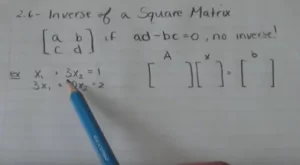 2.6- Inverse of a Square Matrix
[a b
c d] if ad-bc=0, no inverse!
A x b
ex x₁ + 3x₂ = 1 [ ] [ ] = [ ]
3x₁ + x₂ = 2